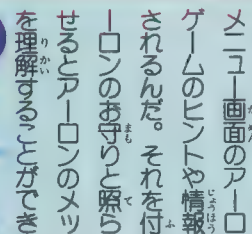 メニュー画面のアーロ
ゲームのヒントや情報
されるんだ。それを付
ーロンのお守りと照ら
せるとアーロンのメッ
を理解することができ